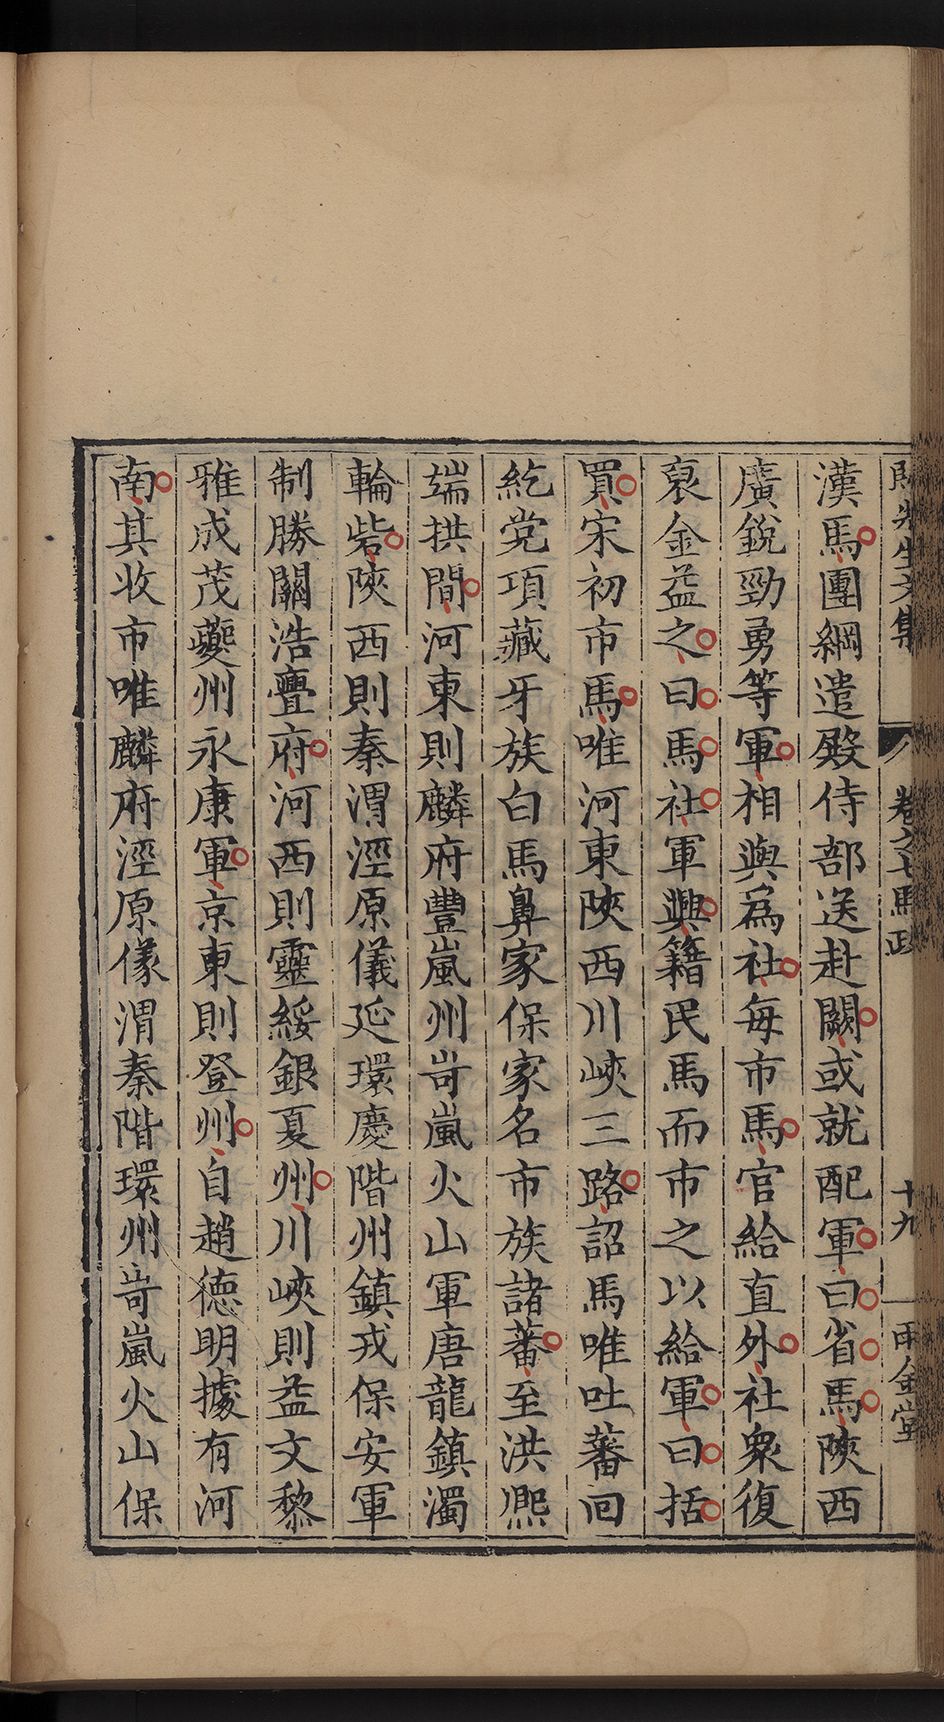 先生文集 卷之七馬政 十九 雨金堂
漢馬團綱遣殿侍部送赴闕或就配軍曰省馬陝西
廣銳勁勇等軍相與爲社每市馬官給直外社衆復
裒金益之曰馬社軍興籍民馬而市之以給軍曰括
買宋初市馬唯河東陝西川峽三路詔馬唯吐蕃回
紇党項藏牙族白馬鼻家保家名市族諸蕃至洪熈
端拱間河東則麟府豐嵐州岢嵐火山軍唐龍鎮濁
輪砦陝西則秦渭涇原儀延環慶階州鎮戎保安軍
制勝關浩亹府河西則靈綏銀夏州川峽則益文黎
雅成茂夔州永康軍京東則登州自趙德明據有河
南其收市唯麟府涇原儀渭秦階環州岢嵐火山保